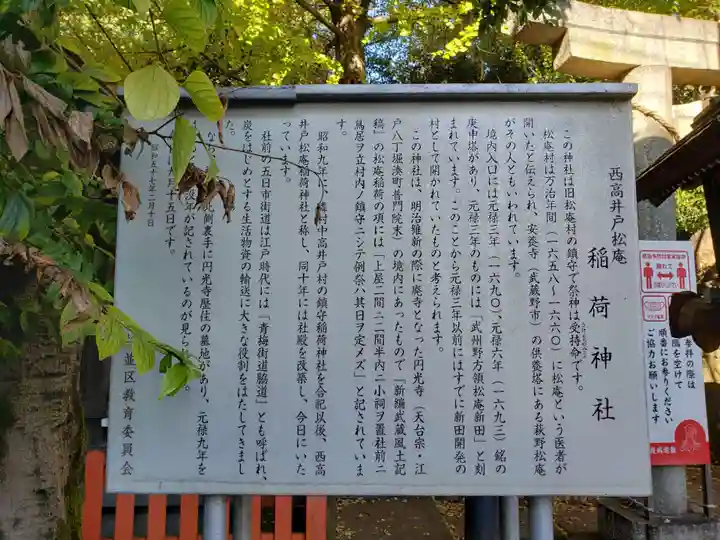 西高井戸松庵
稲荷神社
この神社は旧松庵村の鎮守で祭神は受持命です。
松庵村は万治年間(一六五八〜一六六〇)に松庵という医者が
開いたと伝えられ、安養寺(武蔵野市)の供養塔にある萩野松庵
がその人ともいわれています。
境内入口には元禄三年(一六九〇)、元禄六年(一六九三)銘の
庚申塔があり、元禄三年のものには「武州野方領松庵新田」と刻
まれています。このことから元禄三年以前にはすでに新田開発の
村として開かれていたものと考えられます。
この神社は、明治維新の際に廃寺となった円光寺(天台宗・江
戸八丁堀湊町普門院末)の境内にあったもので「新編武蔵風土記
稿」の松庵稲荷の項には「上屋二間ニ二間半内ニ小祠ヲ置社前ニ
鳥居ヲ立村内ノ鎮守ニシテ例祭ハ其日ヲ定メズ」と記されていま
す。
昭和九年に 村中高井戸村の鎮守稲荷神社を合祀以後、西高
井戸松庵稲荷神社と称し、同十年には社殿を改築し、今日にいた
っています。
社前の五日市街道は江戸時代には「青梅街道脇道」とも呼ばれ、
炭をはじめとする生活物資の輸送に大きな役割をはたしてきまし
た。
な 側裏手に円光寺歴住の墓地があり、元禄九年を
改年が記されているのが見ら
五年です。
昭和五十七年二月十日
並区教育委員会
参拝の際は
間を空けて
順番にお参りください
ご協力お願いします